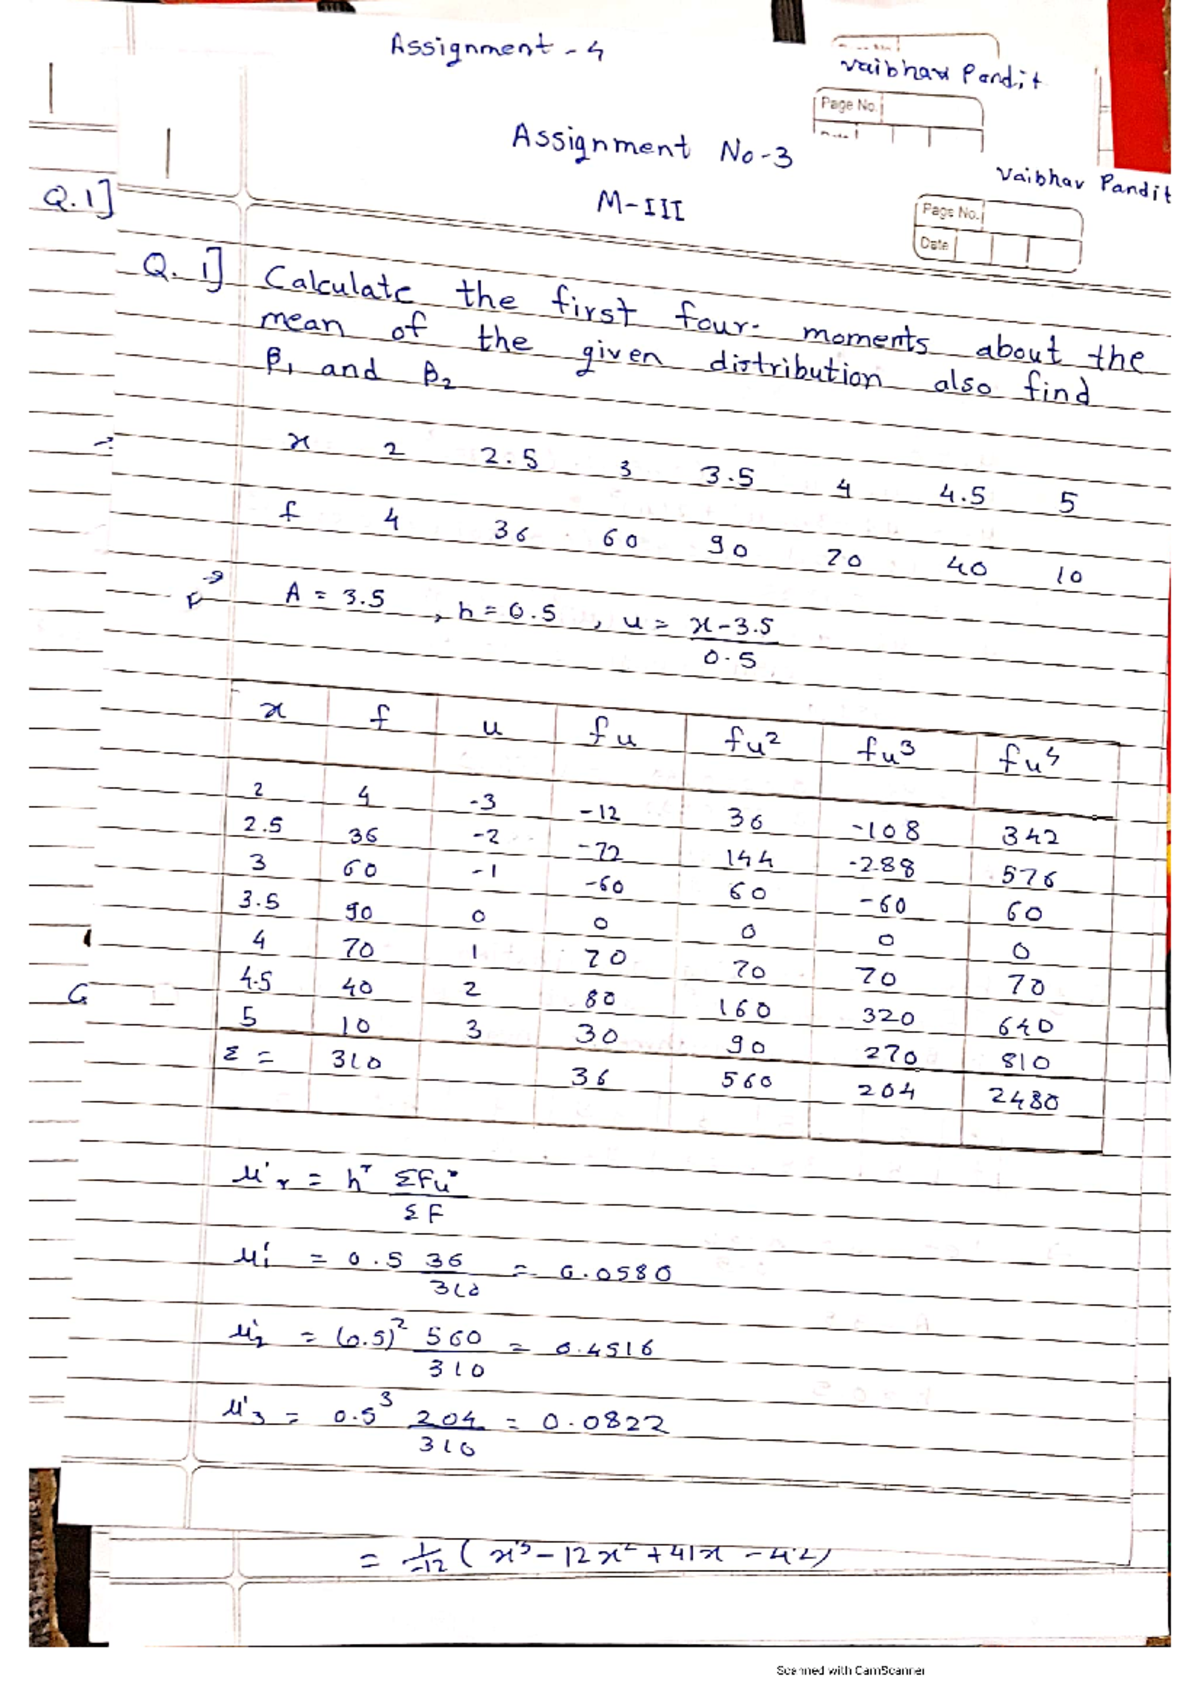 Assignment - 4
Vaibhav Pandit
Page No.
Assignment No-3
Vaibhav Pandit
M-III
Page No.
Date
Q.1]
Q. 1] Calculate the first four moments about the
mean of the given distribution also find
β1 and β2
x 2 2.5 3 3.5 4 4.5 5
f 4 36 60 90 70 40 10
A = 3.5 , h = 0.5 , u = x-3.5
0.5
x f u fu fu² fu³ fu⁴
2 4 -3 -12 36 -108 342
2.5 36 -2 -72 144 -288 576
3 60 -1 -60 60 -60 60
3.5 90 0 0 0 0 0
4 70 1 70 70 70 70
4.5 40 2 80 160 320 640
5 10 3 30 90 270 810
Σ = 310 36 560 204 2480
μ'r = hʳ ΣFuʳ
ΣF
μ'1 = 0.5 36 = 0.0580
310
μ'2 = (0.5)² 560 = 0.4516
310
μ'3 = 0.5³ 204 = 0.0822
310
= 1/-12 ( x³ - 12x² + 41x - 42)
Scanned with CamScanner